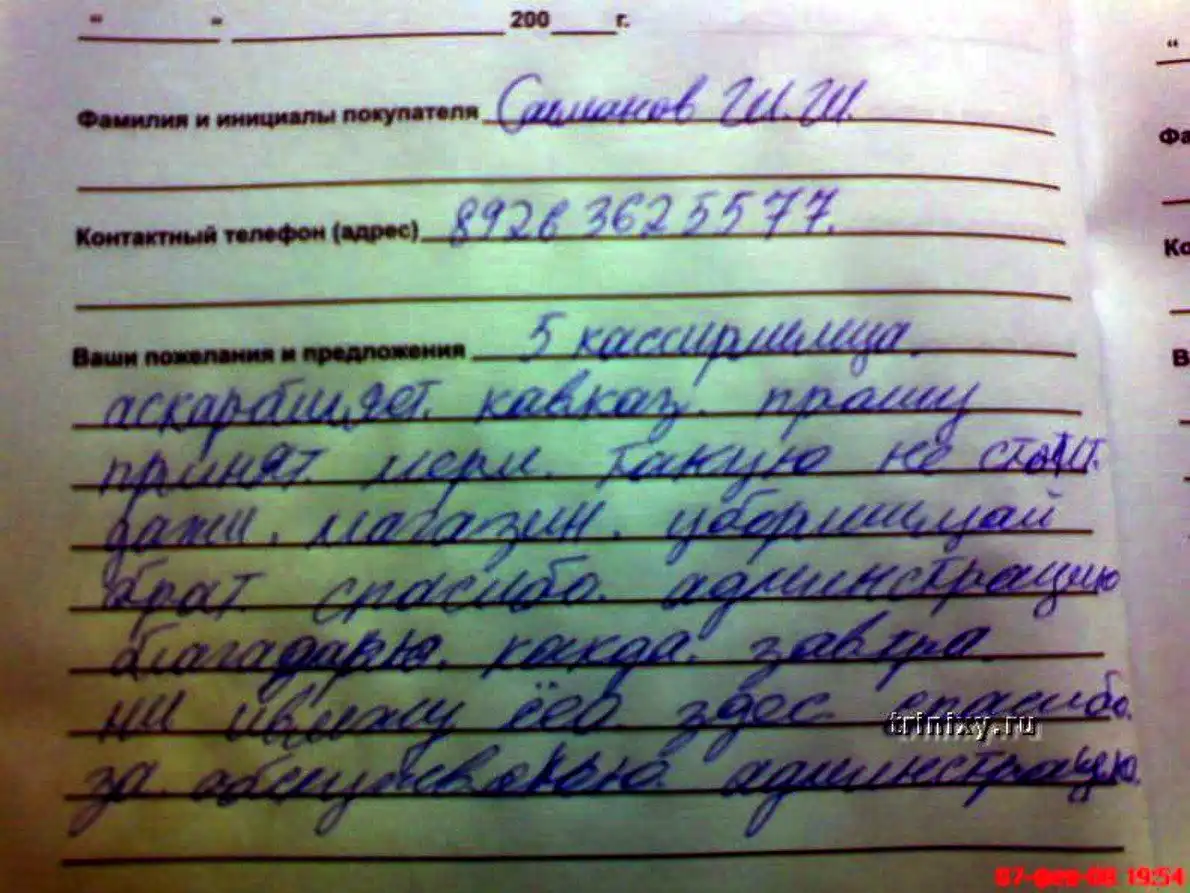 “ “ 200 г.
Фамилия и инициалы покупателя Салманов Ш.Ш.
Контактный телефон (адрес) 8926 3625577.
Ваши пожелания и предложения 5 кассиршища.
аскарбищяет. кавказ. прошу
принят. мери. такую не стоит.
дажи. магазин. уборщищай
брат. спасибо. админстрацию
благадарю. кокда. завтра
ни увижу ёео здес спасибо.
за абслуживанью. админстрацию.
trinixy.ru
07-фев-08 19:54
“
Фа
Ко
В